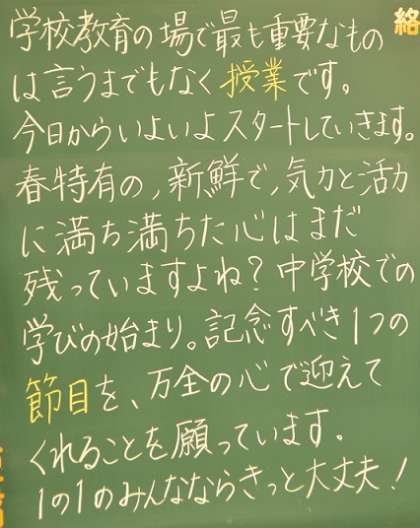 学校教育の場で最も重要なもの
は言うまでもなく授業です。
今日からいよいよスタートしていきます。
春特有の、新鮮で、気力と活力
に満ち満ちた心はまだ
残っていますよね?中学校での
学びの始まり。記念すべき1つの
節目を、万全の心で迎えて
くれることを願っています。
1の1のみんなならきっと大丈夫!
絡